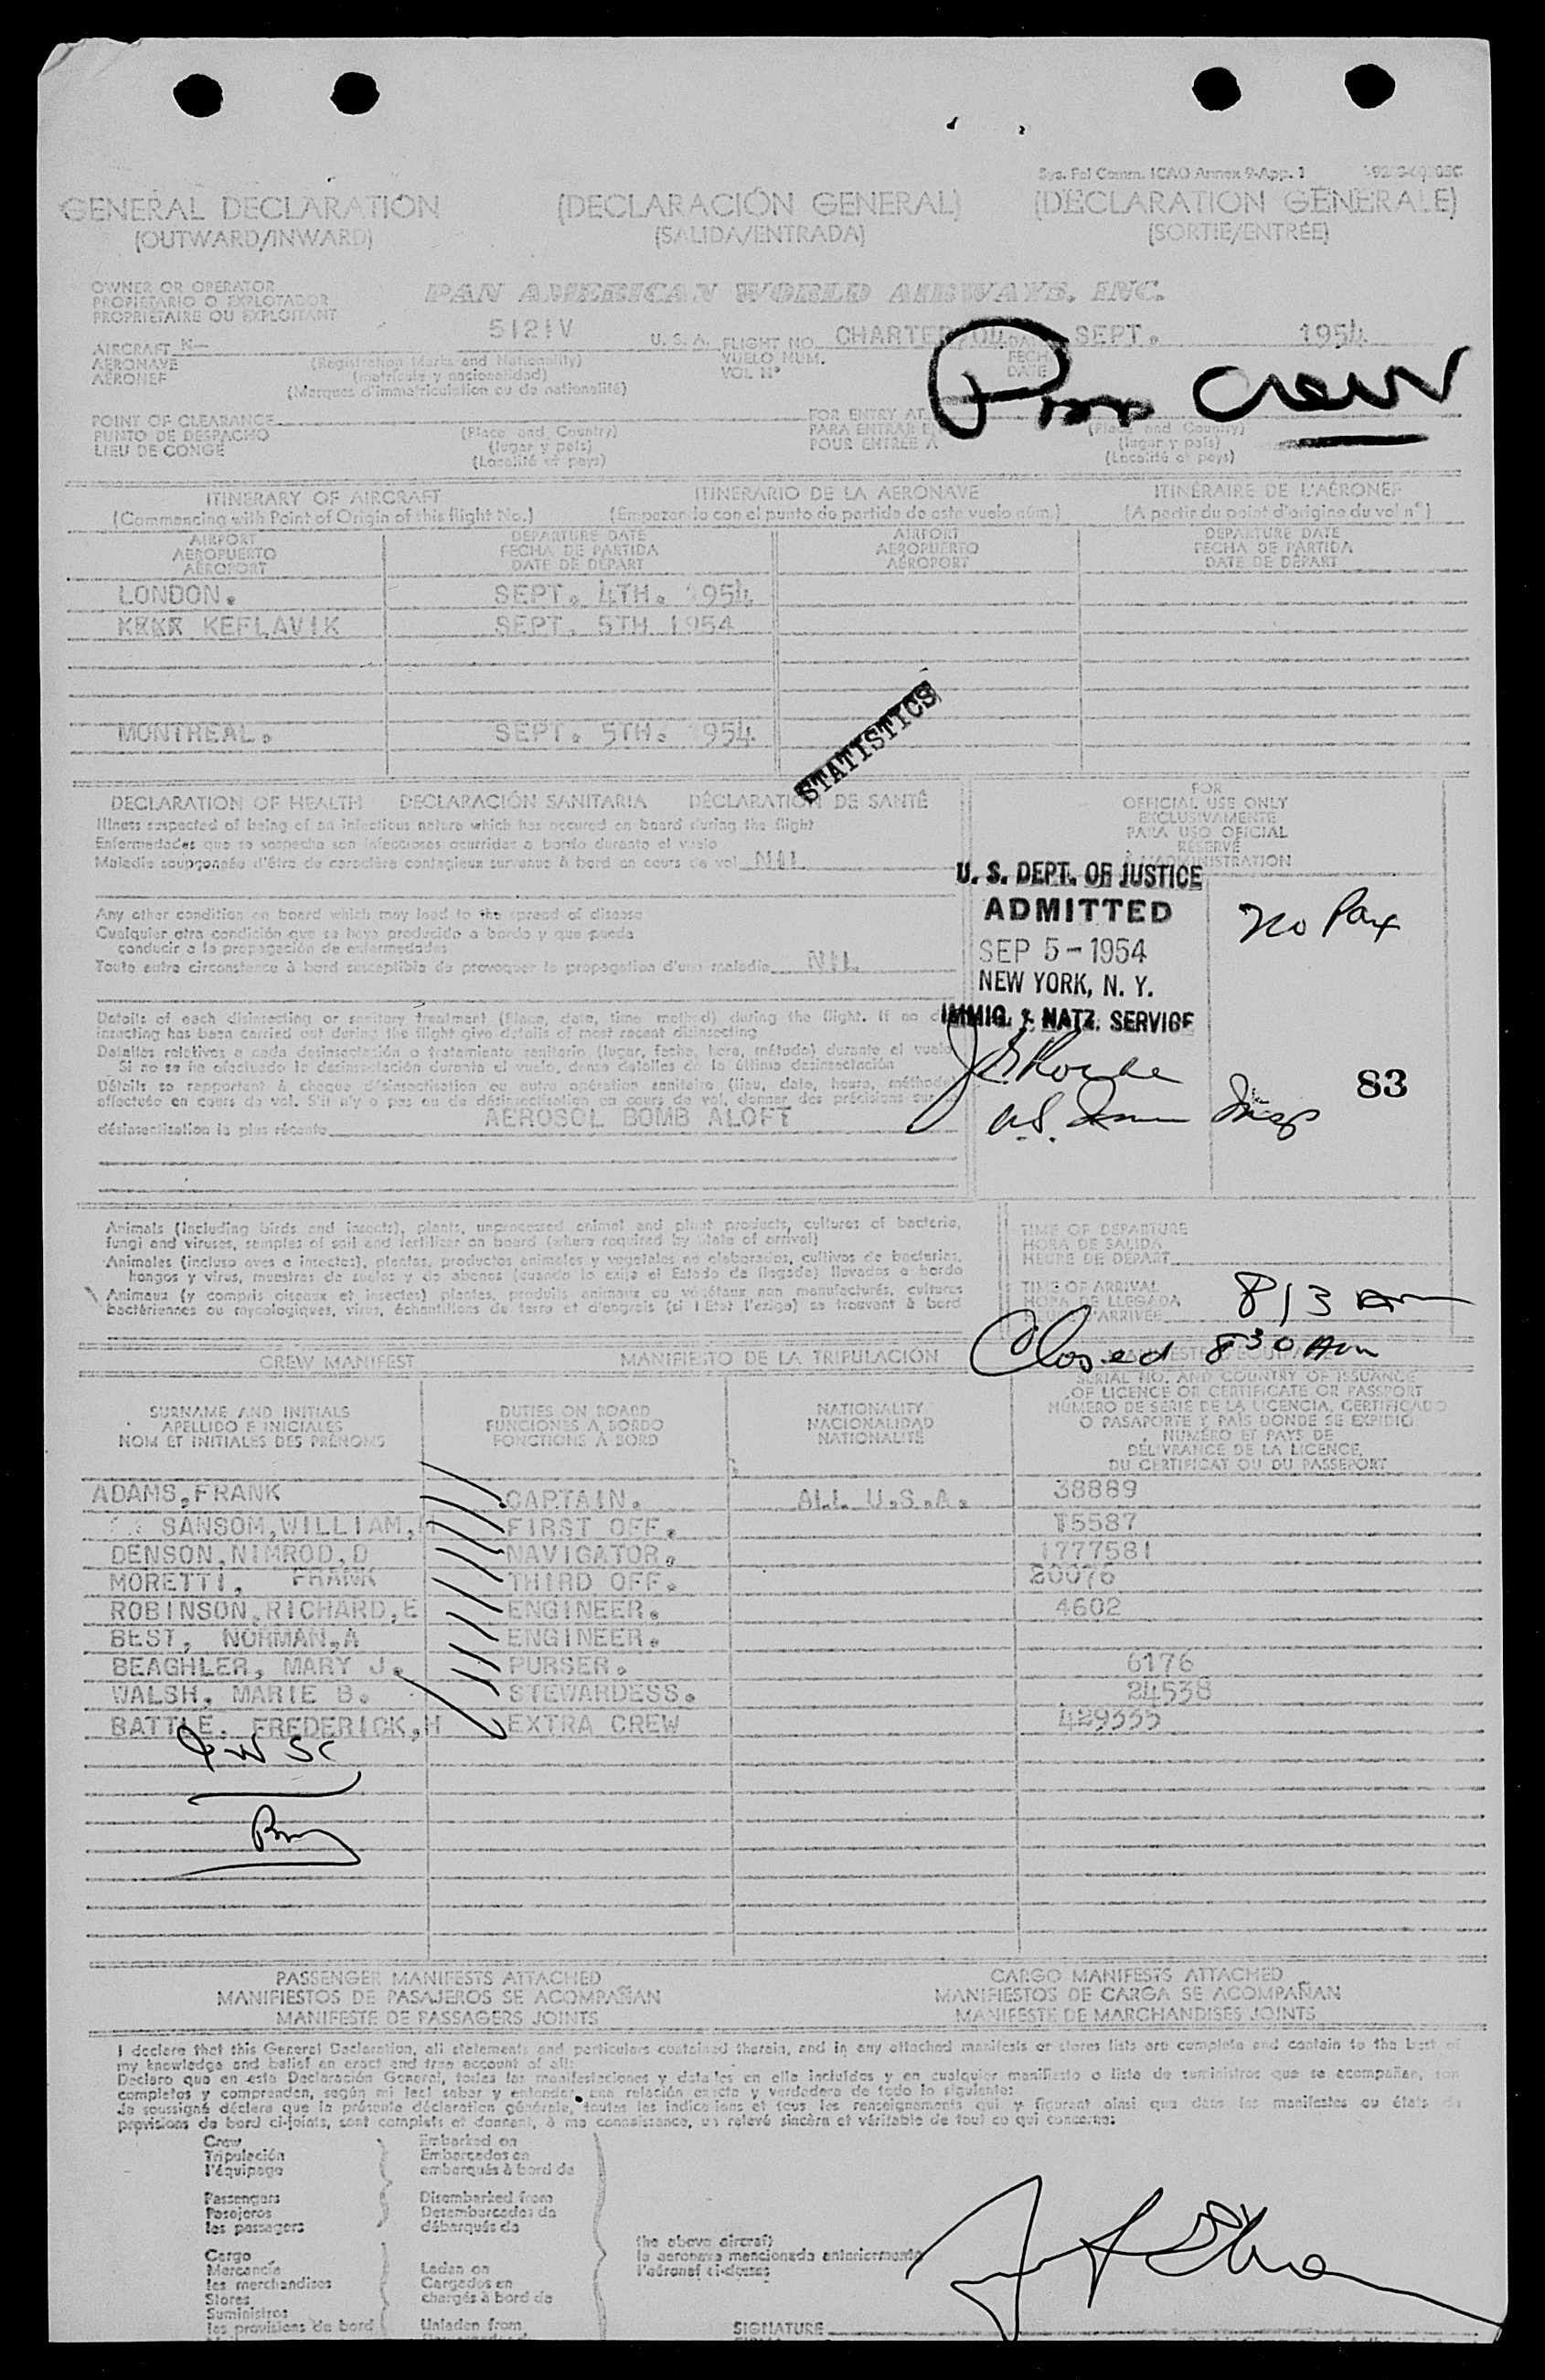 Sys. Fal Comm. ICAO Annex 9-App. 1
GENERAL DECLARATION (DECLARACIÓN GENERAL) (DECLARATION GENERALE)
(OUTWARD/INWARD) (SALIDA/ENTRADA) (SORTIE/ENTRÉE)
OWNER OR OPERATOR
PROPIETARIO O EXPLOTADOR
PROPRIETAIRE OU EXPLOITANT
PAN AMERICAN WORLD AIRWAYS, INC.
AIRCRAFT N— 5121V U. S. A. FLIGHT NO. CHARTER SEPT. 1954
AERONAVE (Registration Marks and Nationality) VUELO NUM. FECH
AÉRONEF (matrícula y nacionalidad) VOL Nº DATE
(Marques d'immatriculation ou de nationalité)
Pan Crew
POINT OF CLEARANCE FOR ENTRY AT
PUNTO DE DESPACHO (Place and Country) PARA ENTRAR E (Place and Country)
LIEU DE CONGÉ (lugar y país) POUR ENTRÉE À (lugar y país)
(Localité et pays) (Localité et pays)
ITINERARY OF AIRCRAFT ITINERARIO DE LA AERONAVE ITINÉRAIRE DE L'AÉRONEF
(Commencing with Point of Origin of this flight No.) (Empezando con el punto de partida de este vuelo núm.) (A partir du point d'origine du vol nº)
AIRPORT DEPARTURE DATE AIRPORT DEPARTURE DATE
AEROPUERTO FECHA DE PARTIDA AEROPUERTO FECHA DE PARTIDA
AÉROPORT DATE DE DÉPART AÉROPORT DATE DE DÉPART
LONDON. SEPT. 4TH. 1954
KEKK KEFLAVIK SEPT. 5TH 1954
MONTREAL. SEPT. 5TH. 1954
STATISTICS
DECLARATION OF HEALTH DECLARACIÓN SANITARIA DÉCLARATION DE SANTÉ
Illness suspected of being of an infectious nature which has occured on board during the flight
Enfermedades que se sospecha son infecciosas ocurridas a bordo durante el vuelo
Maladie soupçonnée d'être de caractère contagieux survenue à bord en cours de vol NIL
Any other condition on board which may lead to the spread of disease
Cualquier otra condición que se haya producido a bordo y que pueda
conducir a la propagación de enfermedades
Toute autre circonstance à bord susceptible de provoquer la propagation d'une maladie NIL
Details of each disinsecting or sanitary treatment (Place, date, time method) during the flight. If no d
insecting has been carried out during the flight give details of most recent disinsecting
Detalles relativos a cada desinsectación o tratamiento sanitario (lugar, fecha, hora, método) durante el vuelo
Si no se ha efectuado la desinsectación durante el vuelo, dense detalles de la última desinsectación
Détails se rapportant à chaque désinsectisation ou autre opération sanitaire (lieu, date, heure, méthode
effectuée en cours de vol. S'il n'y a pas eu de désinsectisation en cours de vol, donner des précisions sur
désinsectisation la plus récente AEROSOL BOMB ALOFT
FOR
OFFICIAL USE ONLY
EXCLUSIVAMENTE
PARA USO OFICIAL
RÉSERVÉ
À L'ADMINISTRATION
U. S. DEPT. OF JUSTICE
ADMITTED
SEP 5 - 1954
NEW YORK, N. Y.
IMMIG. & NATZ. SERVICE
No Pax
U.S. Imm Insp
83
Animals (including birds and insects), plants, unprocessed animal and plant products, cultures of bacteria,
fungi and viruses, samples of soil and fertilizer on board (where required by State of arrival)
Animales (incluso aves e insectos), plantas, productos animales y vegetales no elaborados, cultivos de bacterias,
hongos y virus, muestras de suelos y de abonos (cuando lo exija el Estado de llegada) llevados a bordo
Animaux (y compris oiseaux et insectes) plantes, produits animaux ou végétaux non manufacturés, cultures
bactériennes ou mycologiques, virus, échantillons de terre et d'engrais (si l Etat l'exige) se trouvant à bord
TIME OF DEPARTURE
HORA DE SALIDA
HEURE DE DÉPART
TIME OF ARRIVAL
HORA DE LLEGADA
D'ARRIVÉE
813 Am
Closed 830 Am
CREW MANIFEST MANIFIESTO DE LA TRIPULACIÓN
SURNAME AND INITIALS DUTIES ON BOARD NATIONALITY SERIAL NO. AND COUNTRY OF ISSUANCE
APELLIDO E INICIALES FUNCIONES A BORDO NACIONALIDAD OF LICENCE OR CERTIFICATE OR PASSPORT
NOM ET INITIALES DES PRÉNOMS FONCTIONS À BORD NATIONALITÉ NÚMERO DE SERIE DE LA LICENCIA, CERTIFICADO
O PASAPORTE Y PAÍS DONDE SE EXPIDIÓ
NUMÉRO ET PAYS DE
DÉLIVRANCE DE LA LICENCE,
DU CERTIFICAT OU DU PASSEPORT
ADAMS,FRANK CAPTAIN. ALL U.S.A. 38889
SANSOM,WILLIAM, FIRST OFF. 15587
DENSON,NIMROD,D NAVIGATOR. 1777581
MORETTI, FRANK THIRD OFF. 20076
ROBINSON,RICHARD,E ENGINEER. 4602
BEST, NORMAN,A ENGINEER.
BEAGHLER, MARY J. PURSER. 6176
WALSH, MARIE B. STEWARDESS. 24538
BATTLE, FREDERICK,H EXTRA CREW 429335
PASSENGER MANIFESTS ATTACHED CARGO MANIFESTS ATTACHED
MANIFIESTOS DE PASAJEROS SE ACOMPAÑAN MANIFIESTOS DE CARGA SE ACOMPAÑAN
MANIFESTE DE PASSAGERS JOINTS MANIFESTE DE MARCHANDISES JOINTS
I declare that this General Declaration, all statements and particulars contained therein, and in any attached manifests or stores lists are complete and contain to the best of
my knowledge and belief an exact and true account of all:
Declaro que en esta Declaración General, todas las manifestaciones y detalles en ella incluídos y en cualquier manifiesto o lista de suministros que se acompañan, son
completos y comprenden, según mi leal saber y entender, una relación exacta y verdadera de todo lo siguiente:
Je soussigné déclare que la présente déclaration générale, toutes les indications et tous les renseignements qui y figurent ainsi que dans les manifestes ou états de
provisions de bord ci-joints, sont complets et donnent, à ma connaissance, un relevé sincère et véritable de tout ce qui concerne:
Crew Embarked on
Tripulación Embarcados en
l'équipage embarqués à bord de
Passengers Disembarked from
Pasajeros Desembarcados de
les passagers débarqués de
the above aircraft
la aeronave mencionada anteriormente
l'aéronef ci-dessus
Cargo
Mercancía Laden on
les merchandises Cargados en
Stores chargés à bord de
Suministros
les provisions de bord Unladen from
SIGNATURE